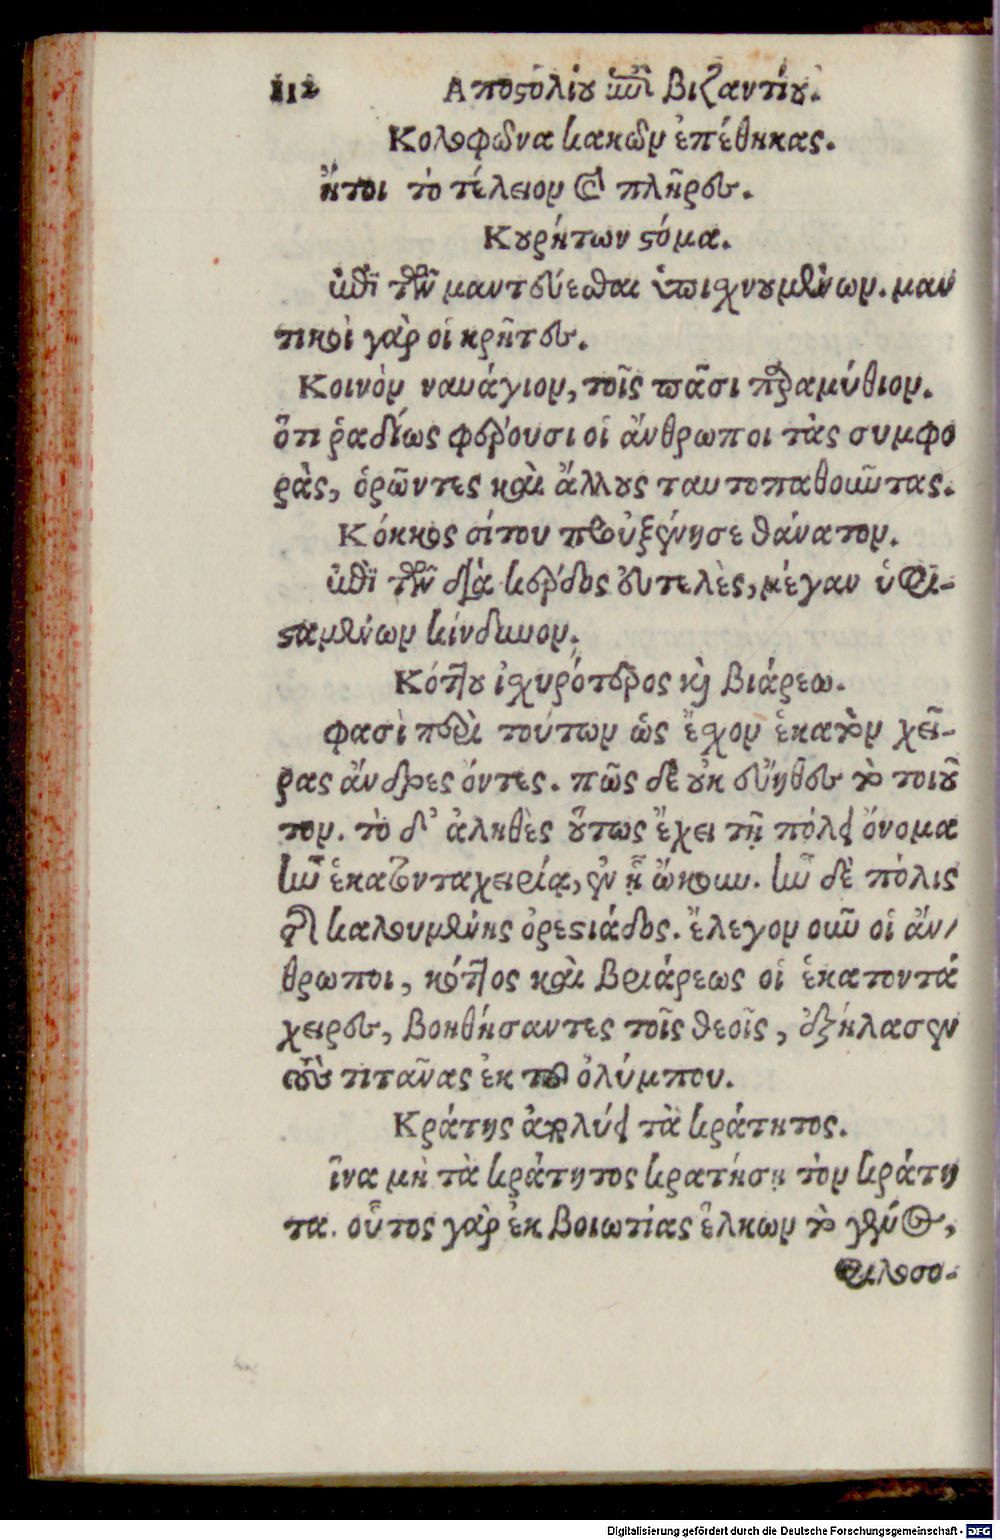 112 Αποστολίου τοῦ βιζαντίου.
Κολοφῶνα κακῶν ἐπέθηκας.
ἤτοι τὸ τέλειον καὶ πλῆρες.
Κουρήτων στόμα.
ἐπὶ τῶν μαντεύεσθαι ὑπισχνουμένων. μαν
τικοὶ γὰρ οἱ κρῆτες.
Κοινὸν ναυάγιον, τοῖς πᾶσι παραμύθιον.
ὅτι ῥαδίως φέρουσι οἱ ἄνθρωποι τὰς συμφο
ρὰς, ὁρῶντες καὶ ἄλλους ταυτοπαθοῦντας.
Κόκκος σίτου προὐξένησε θάνατον.
ἐπὶ τῶν διὰ κέρδος εὐτελὲς, μέγαν ὑφι-
σταμένων κίνδυνον.
Κόττου ἰχυρότερος καὶ βιάρεω.
φασὶ περὶ τούτων ὡς ἔχον ἑκατὸν χεῖ-
ρας ἄνδρες ὄντες. πῶς δὲ οὐκ εὔηθες τὸ τοιοῦ
τον. τὸ δ' ἀληθὲς οὕτως ἔχει τῇ πόλει ὄνομα
ἦν ἑκατονταχειρία, ἐν ᾗ ᾤκουν. ἦν δὲ πόλις
τῆς καλουμένης ὀρεστιάδος. ἔλεγον οὖν οἱ ἄν/
θρωποι, κόττος καὶ βριάρεως οἱ ἑκατοντά
χειρες, βοηθήσαντες τοῖς θεοῖς, ἐξήλασεν
τοὺς τιτᾶνας ἐκ τοῦ ὀλύμπου.
Κράτης ἀπολύει τὰ κράτητος.
ἵνα μὴ τὰ κράτητος κρατήσῃ τὸν κράτη
τα. οὗτος γὰρ ἐκ βοιωτίας ἕλκων τὸ γένος,
φιλοσο-
Digitalisierung gefördert durch die Deutsche Forschungsgemeinschaft - DFG